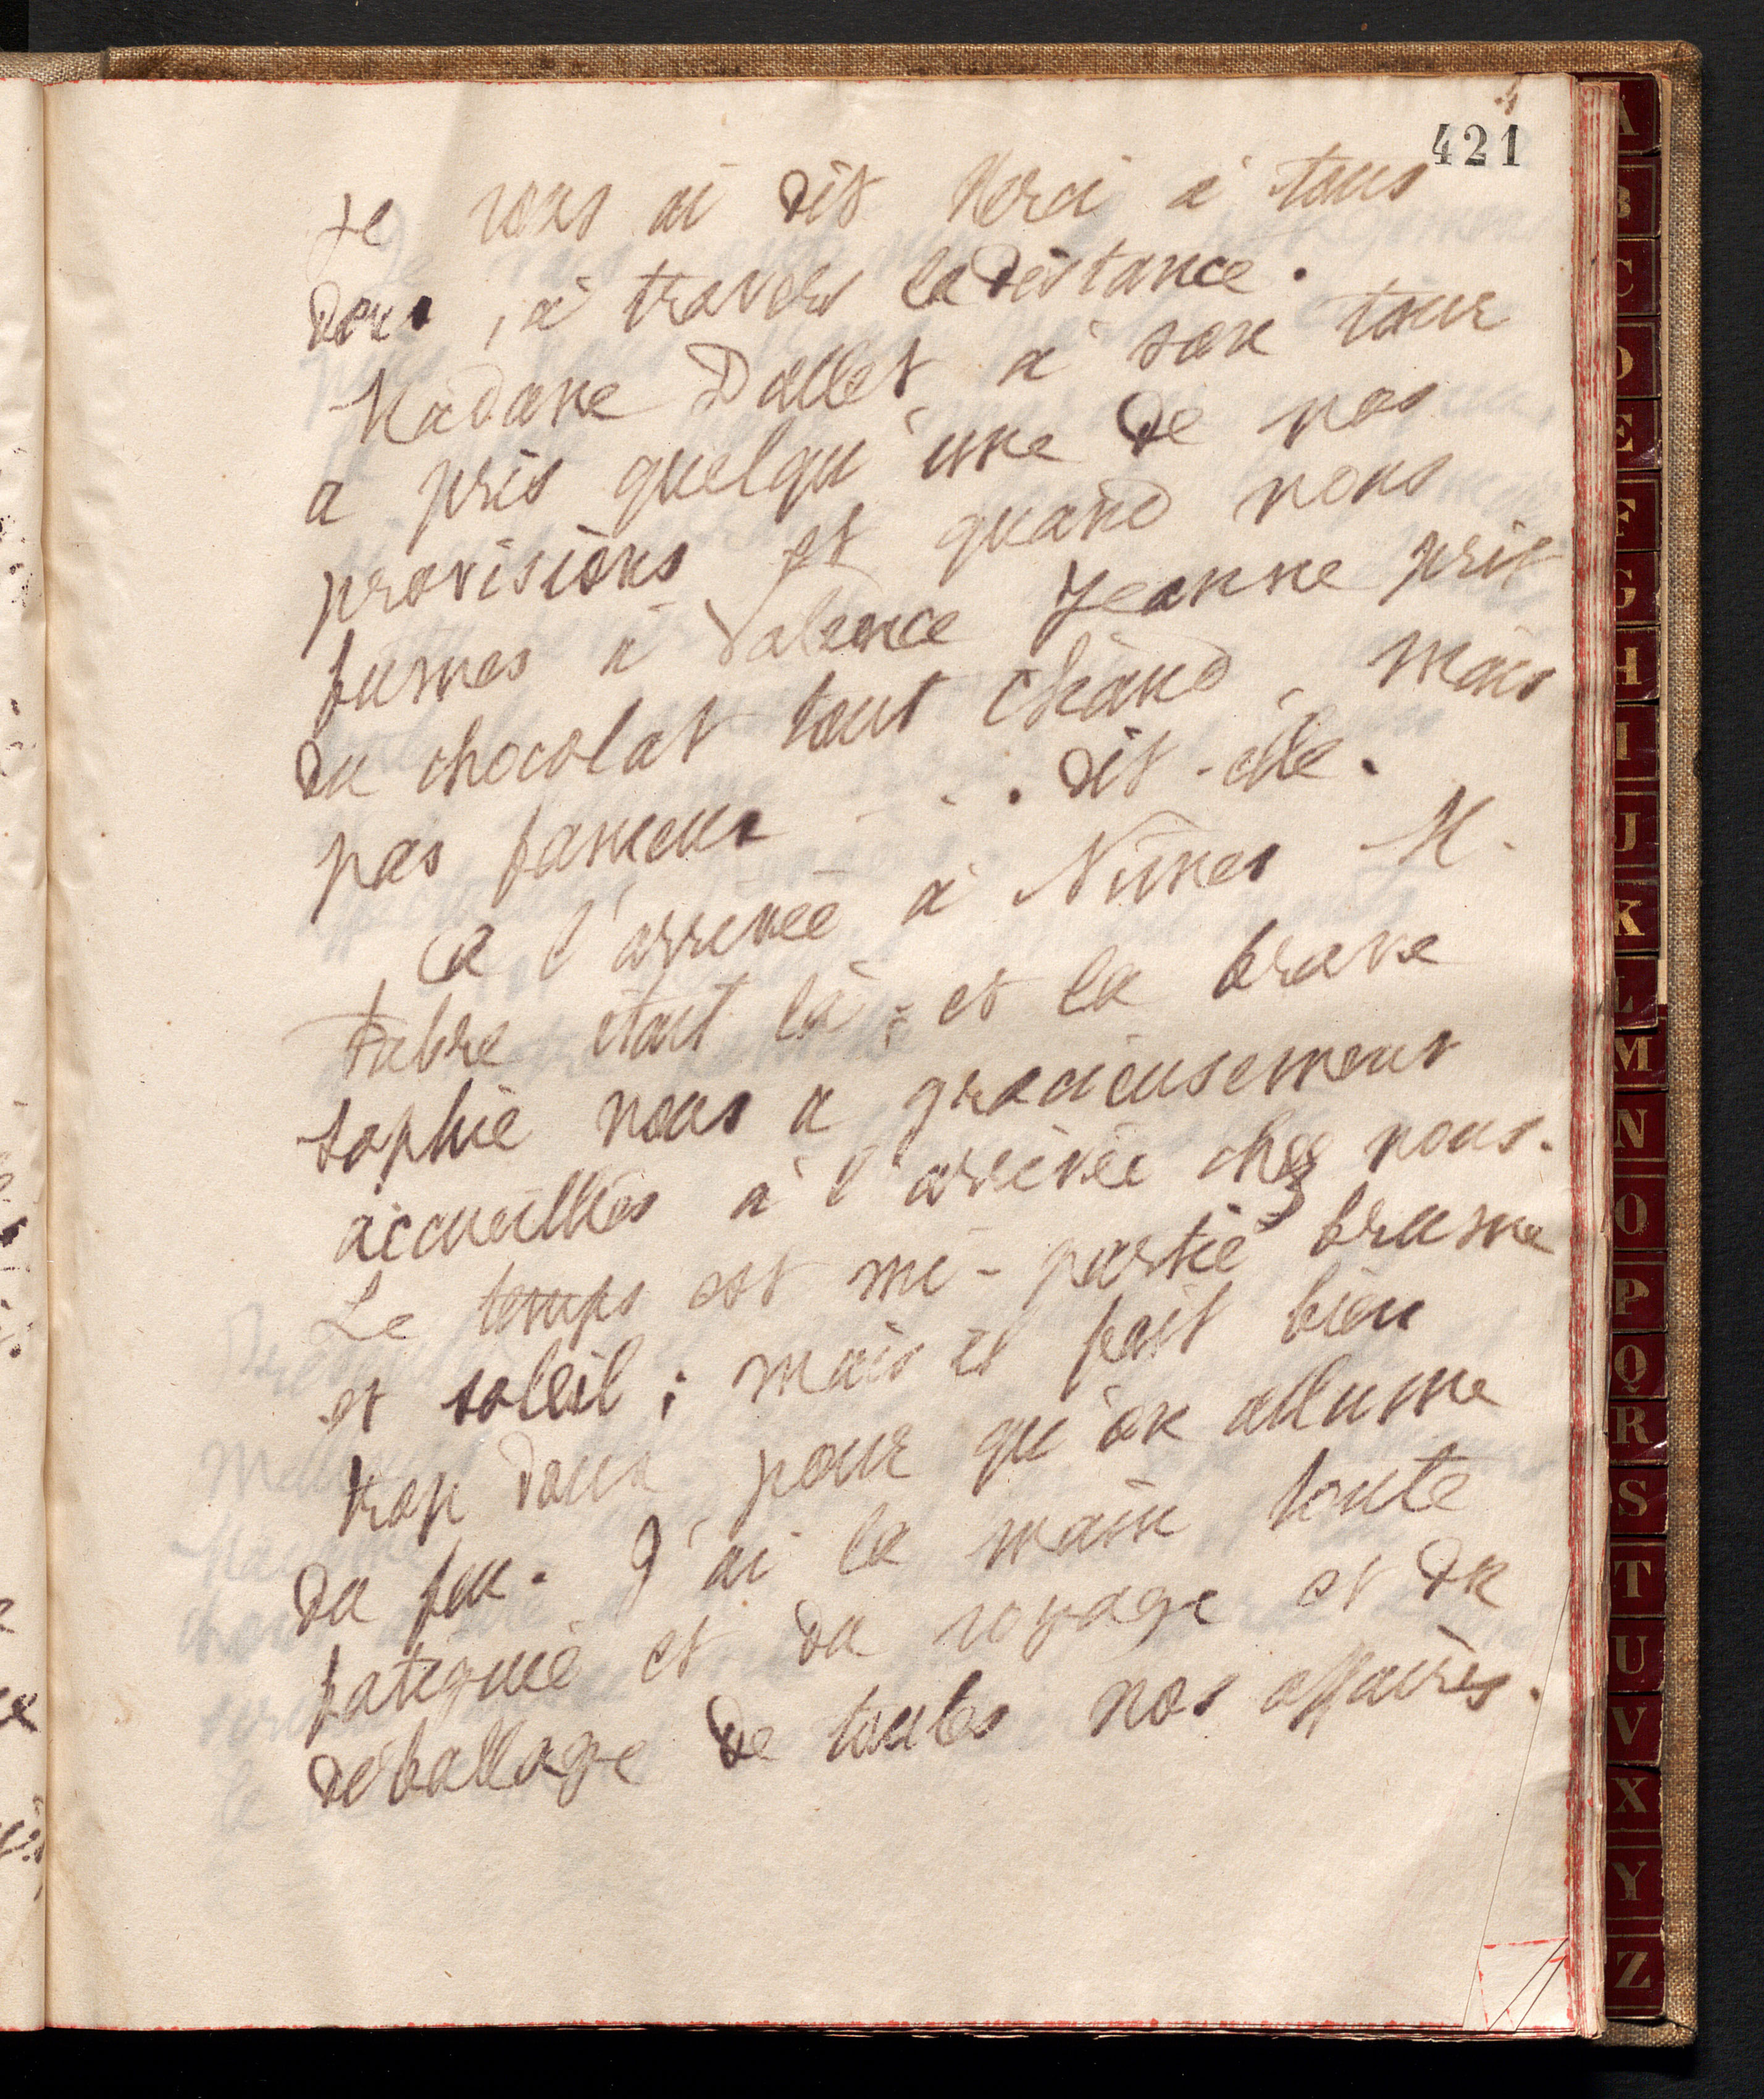 421
Je vous ai dit Merci à tous
deux, à travers la distance.
Madame Dallet à son tour
a pris quelqu'une de nos
provisions et quand nous
fumes à Valence Jeanne prit
du chocolat tout chaud, mais
pas fameux . . . dit-elle.
A l'arrivée à Nîmes M.
Fabre était là; et la brave
Sophie nous a gracieusement
accueillies à l'arrivée chez nous.
Le temps est mi-partie brume
et soleil; mais il fait bien
trop doux pour qu'on allume
du feu. J'ai la main toute
fatiguée et du voyage et du
déballage de toutes nos affaires.
A
B
C
D
E
F
G
H
I
J
K
L
M
N
O
P
Q
R
S
T
U
V
X
Y
Z